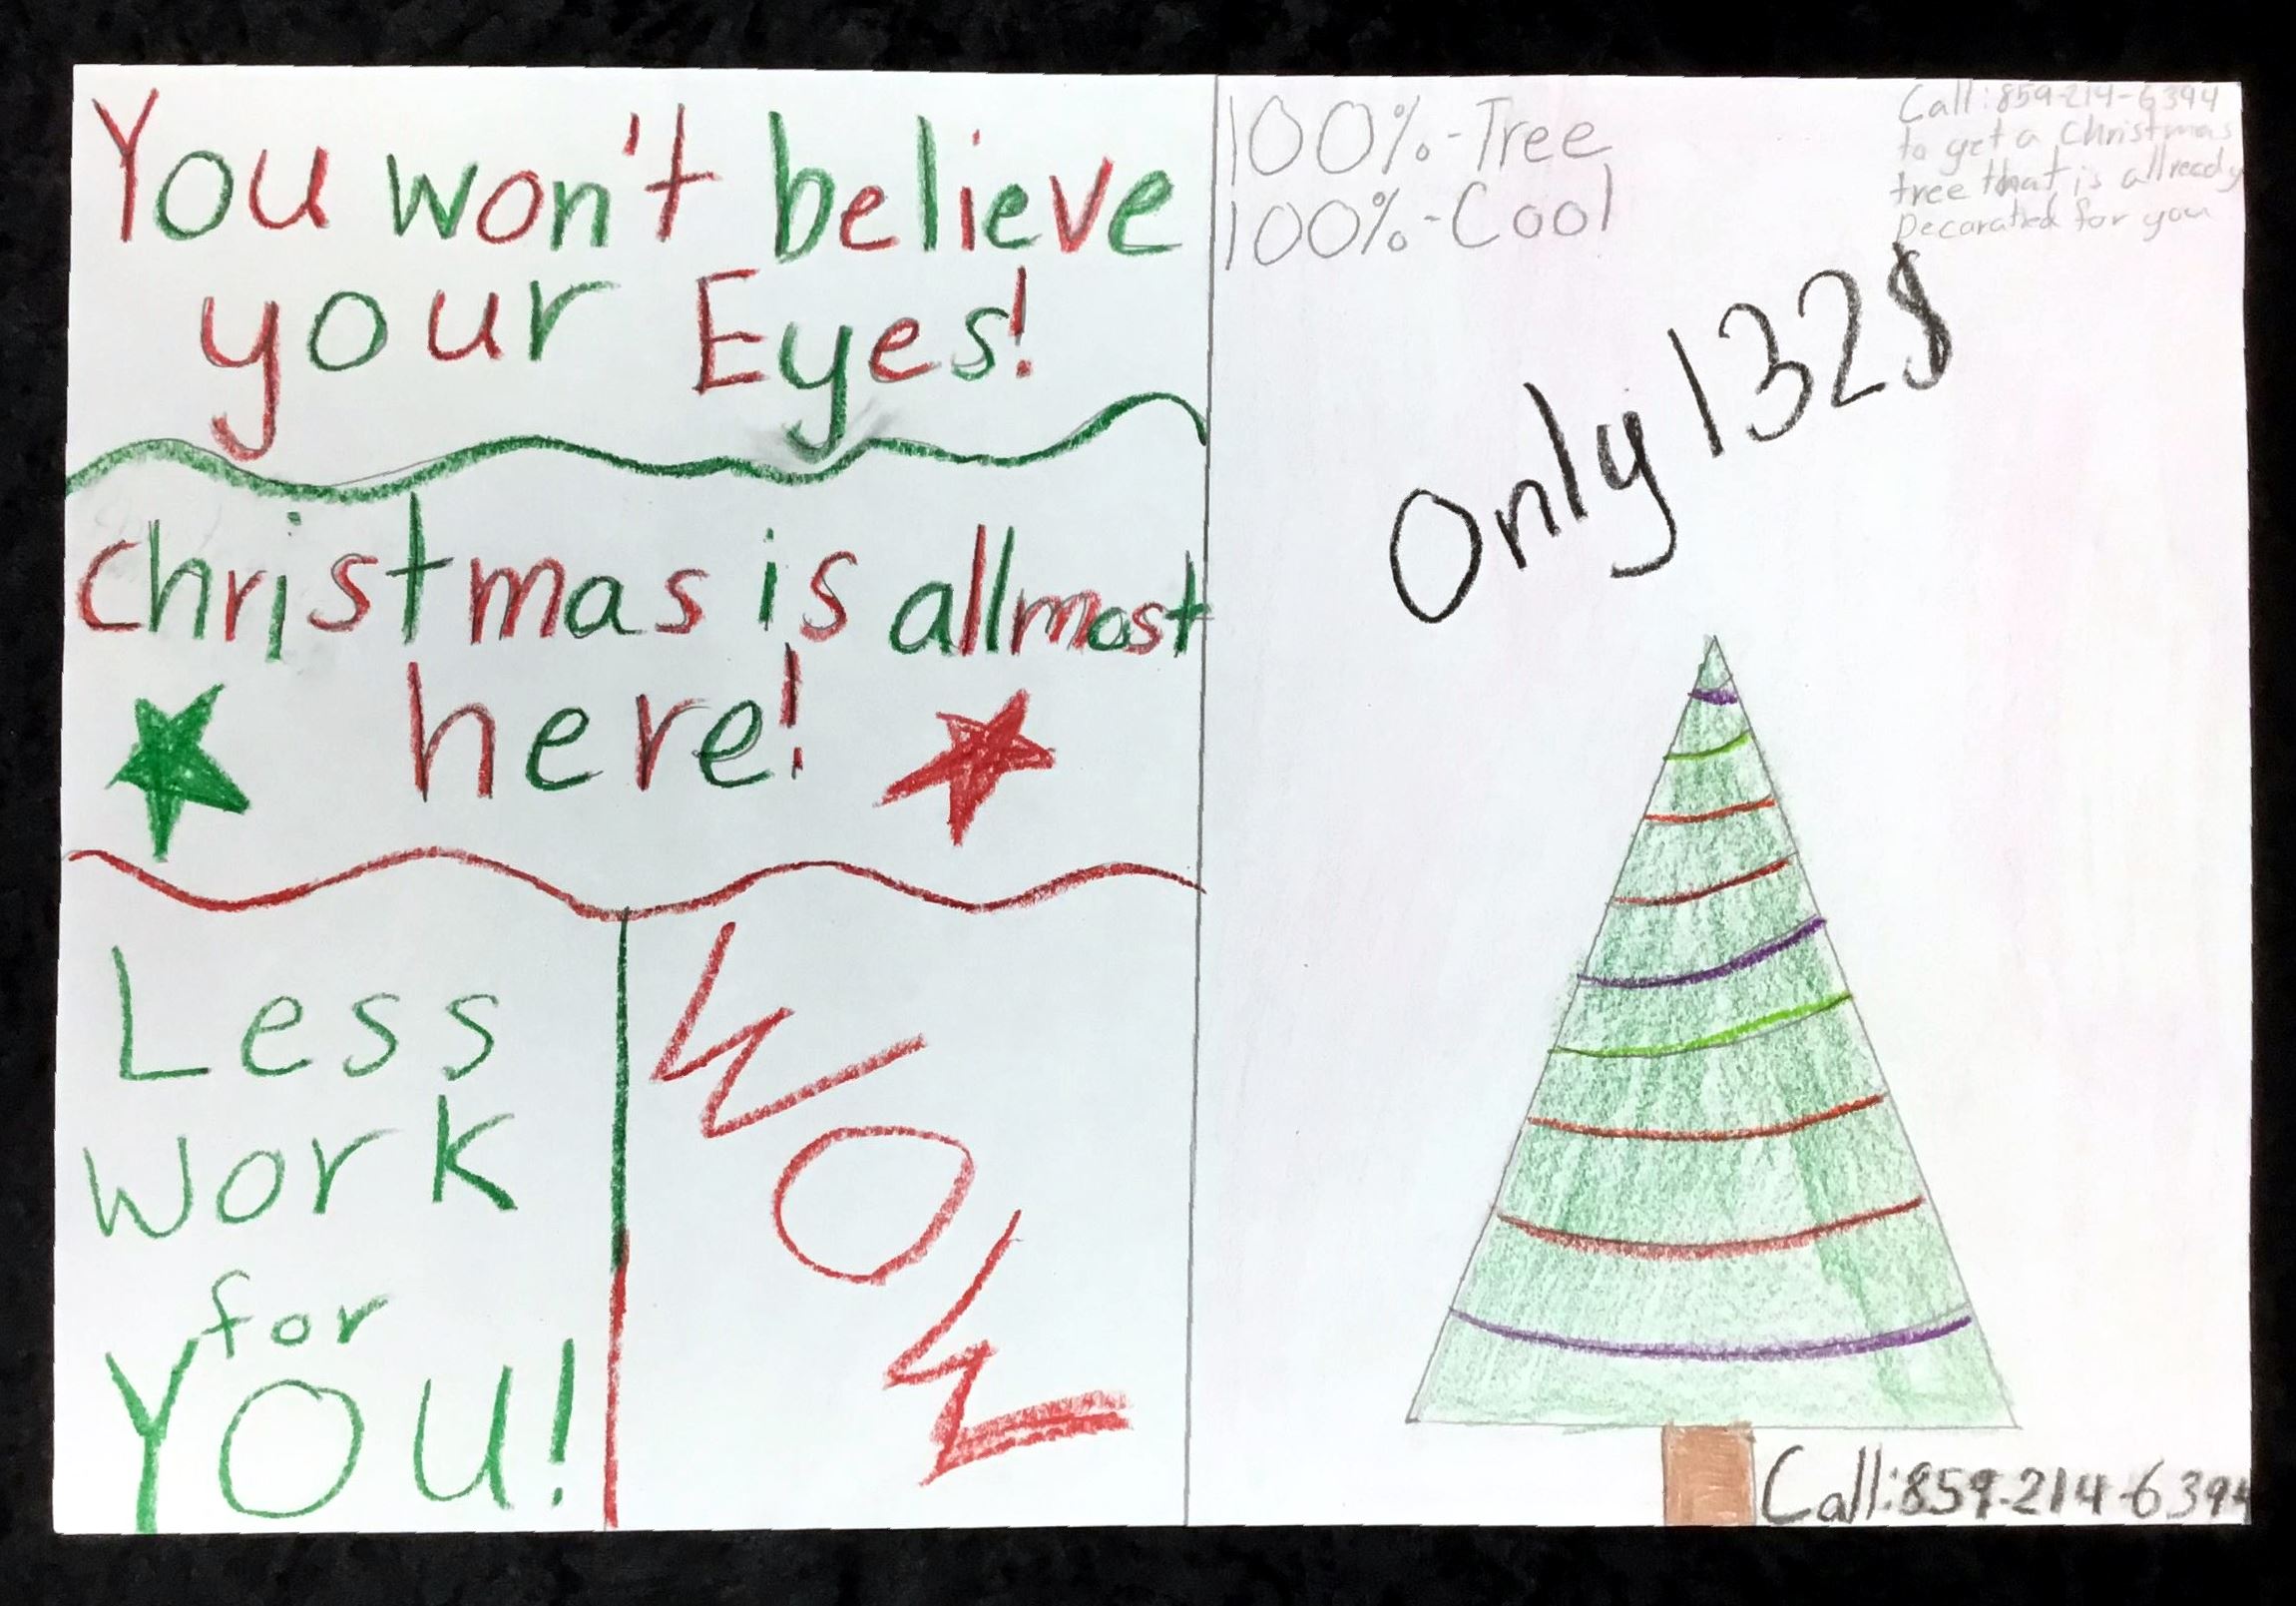 You won't believe
your Eyes!
christmas is allmost
here!
Less
work
for
YOU!
WOW
100%-Tree
100%-Cool
Call:859-214-6394
to get a Christmas
tree that is allready
Decoratied for you
Only 132$
Call:859-214-6394